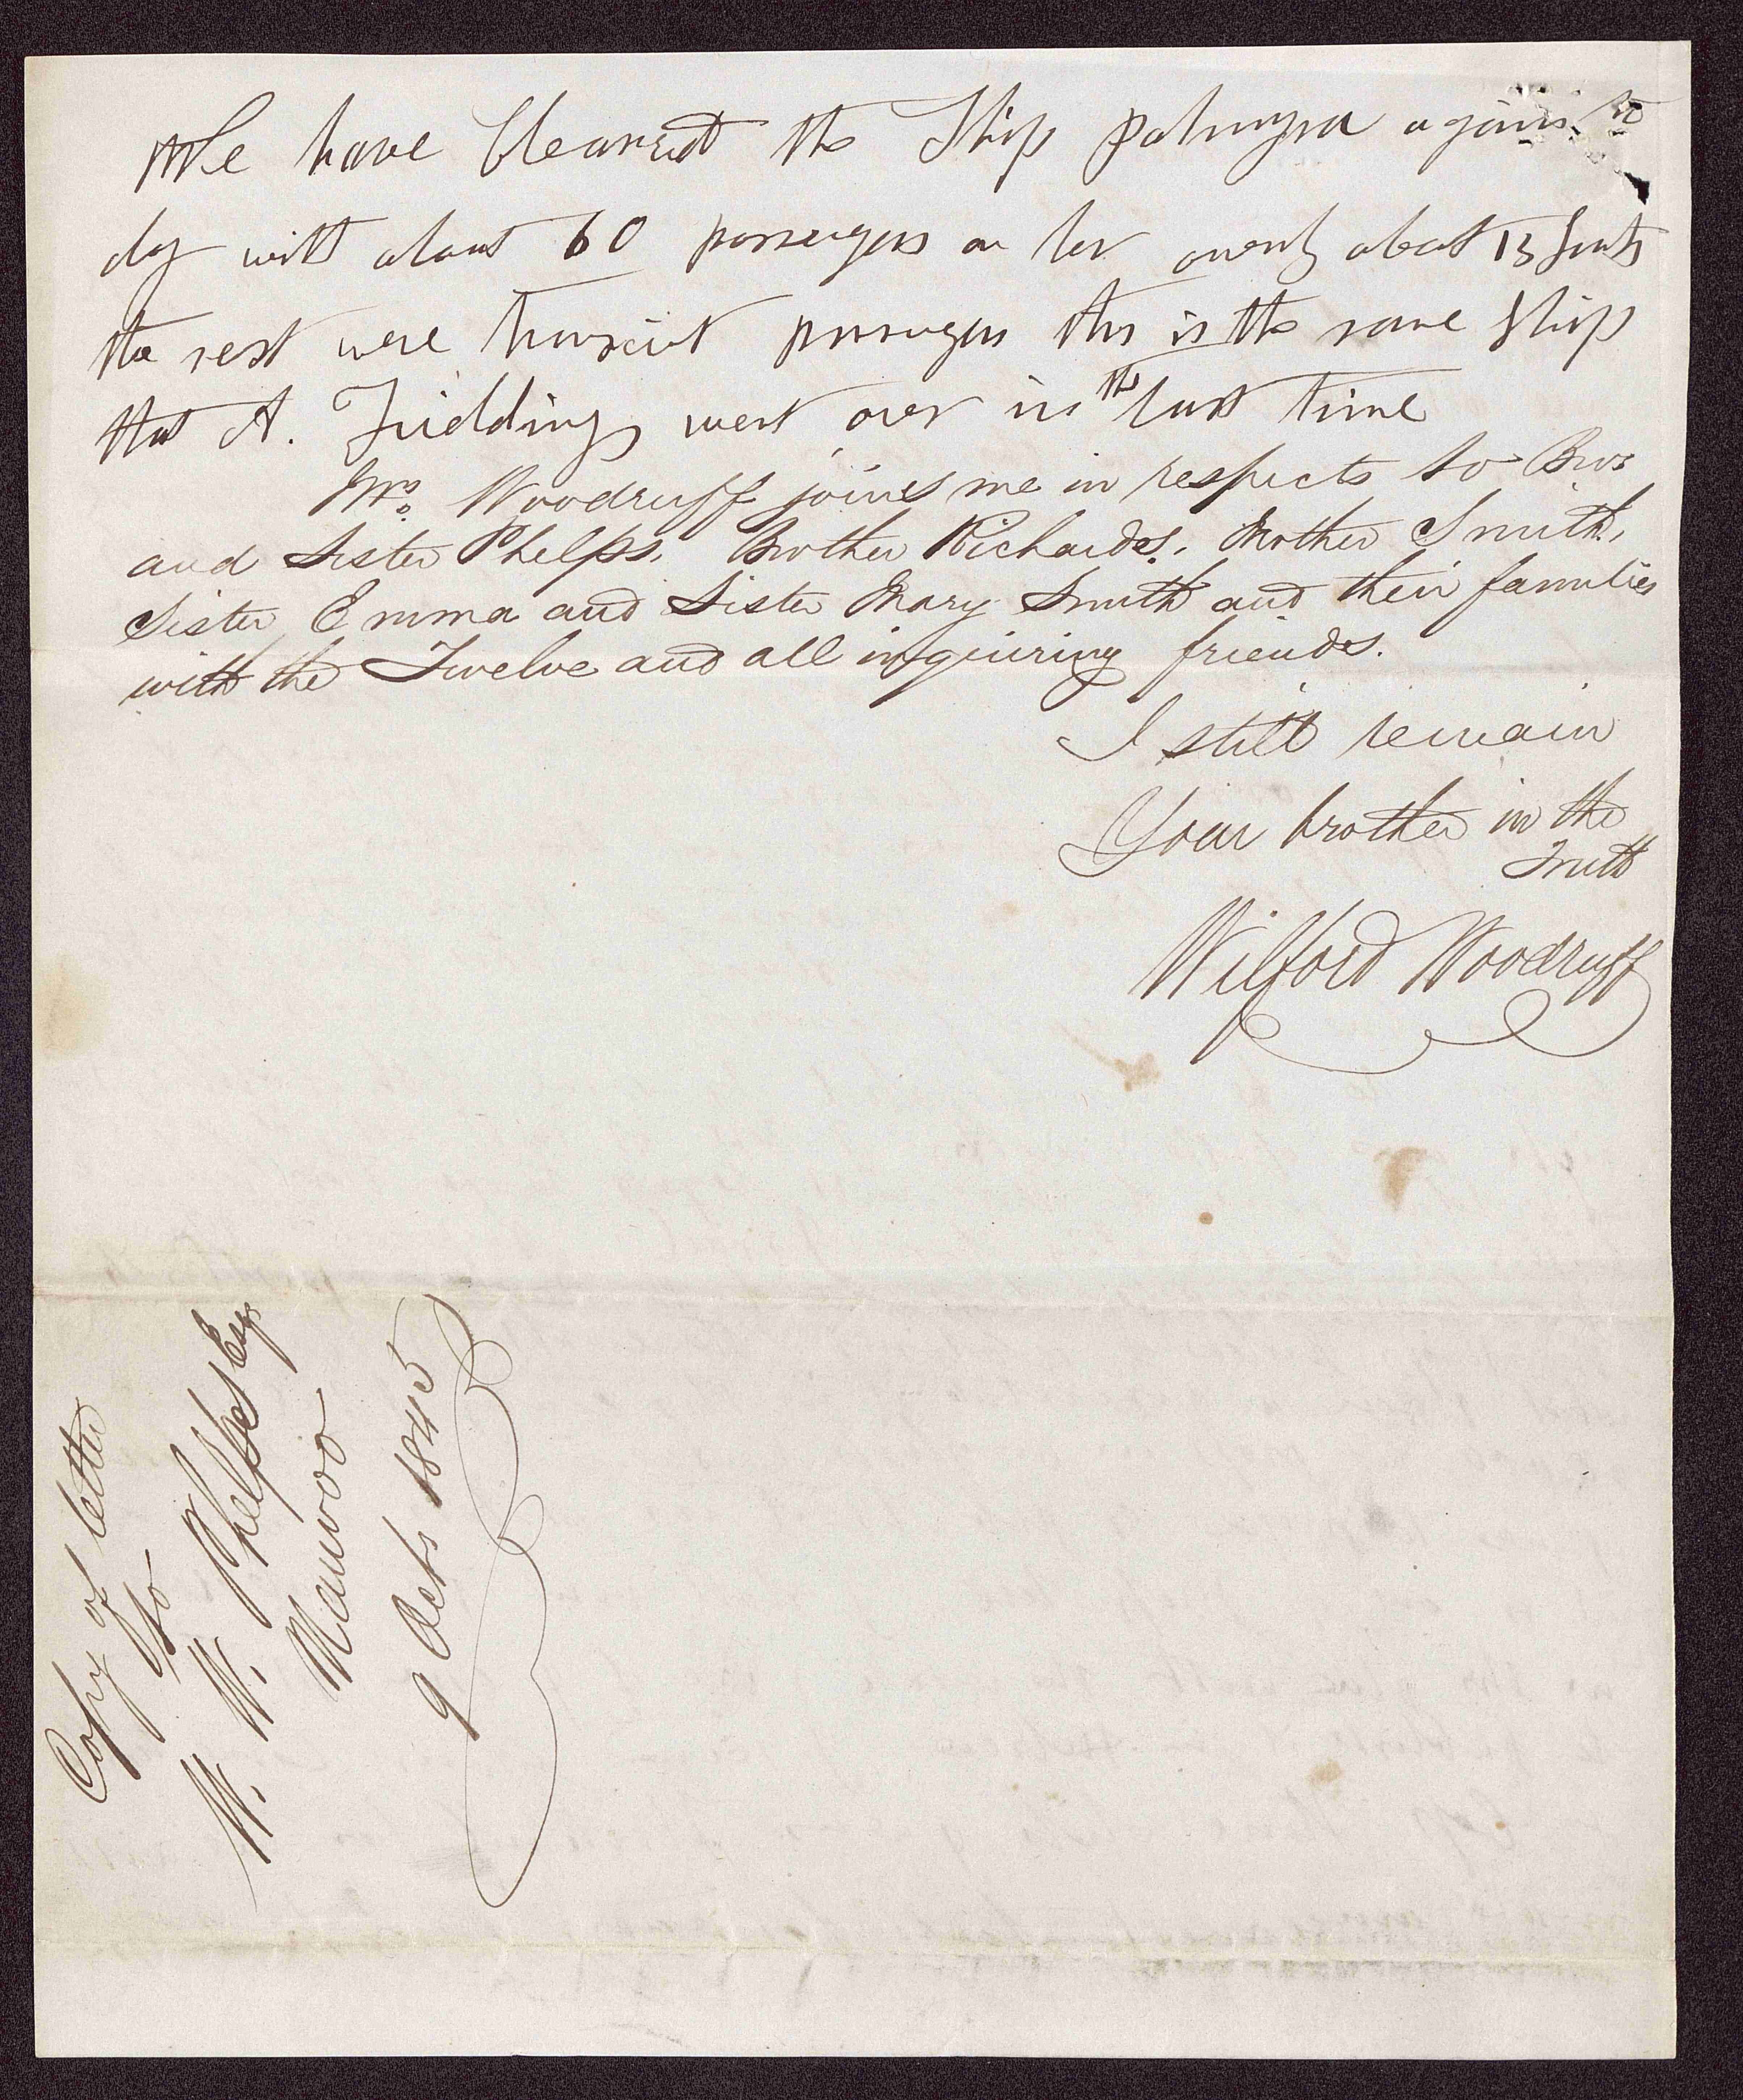 We have Cleared the Ship palmyra again to
day with about 60 passengers on her ownly about 13 Saints
the rest were transient passengers this is the same Ship
that A. Fielding went over in the last time
Mrs. Woodruff joines me in respects to Bror
and Sister Phelps, Brother Richards, Mother Smith,
Sister Emma and Sister Mary Smith and their families
with the Twelve and all inquiring friends.
I still remain
Your brother in the
Truth
Wilford Woodruff
Copy of letter
to
W. W. Phelps Esqr
Nauvoo
9 Octr 1845